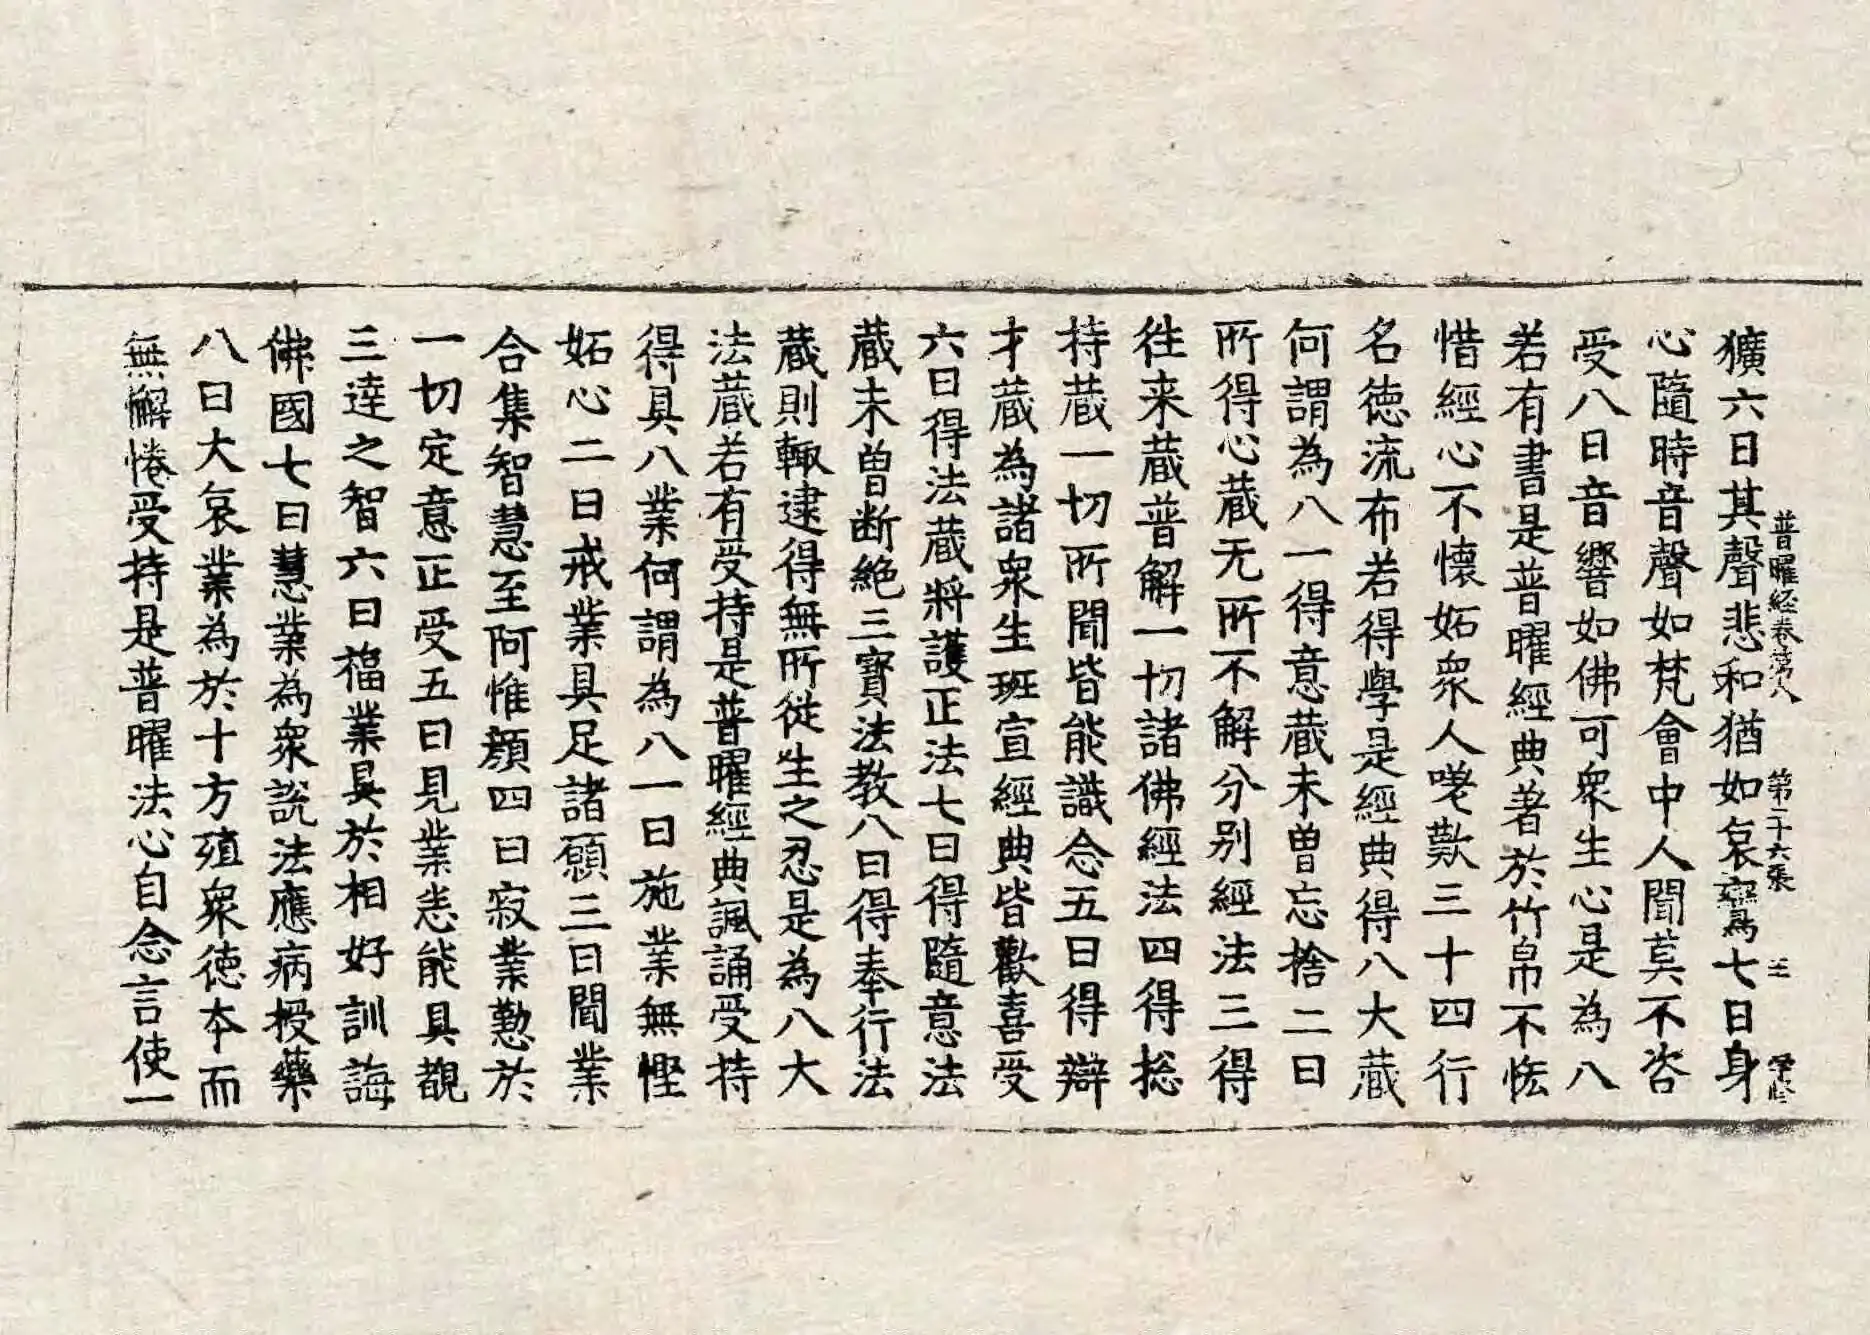 獷六曰其聲悲和猶如哀鸞七曰身
普曜経卷第八 第二十六張 𦍒
心隨時音聲如梵會中人聞莫不咨
受八曰音響如佛可衆生心是為八
若有書是普曜經典著於竹帛不恡
惜經心不懷妬衆人嗟歎三十四行
名徳流布若得學是經典得八大蔵
何謂為八一得意蔵未曾忘捨二曰
所得心蔵无所不解分别經法三得
往来蔵普解一切諸佛經法四得捴
持蔵一切所聞皆能識念五曰得辯
才蔵為諸衆生班宣經典皆歡喜受
六曰得法蔵將護正法七曰得隨意法
蔵未曾断絶三寳法教八曰得奉行法
蔵則輙逮得無所從生之忍是為八大
法蔵若有受持是普曜經典諷誦受持
得具八業何謂為八一曰施業無慳
妬心二曰戒業具足諸願三曰聞業
合集智慧至阿惟顔四曰寂業懃於
一切定意正受五曰見業悉能具覩
三達之智六曰福業具於相好訓誨
佛國七曰慧業為衆說法應病授藥
八曰大哀業為於十方殖衆徳本而
無懈惓受持是普曜法心自念言使一